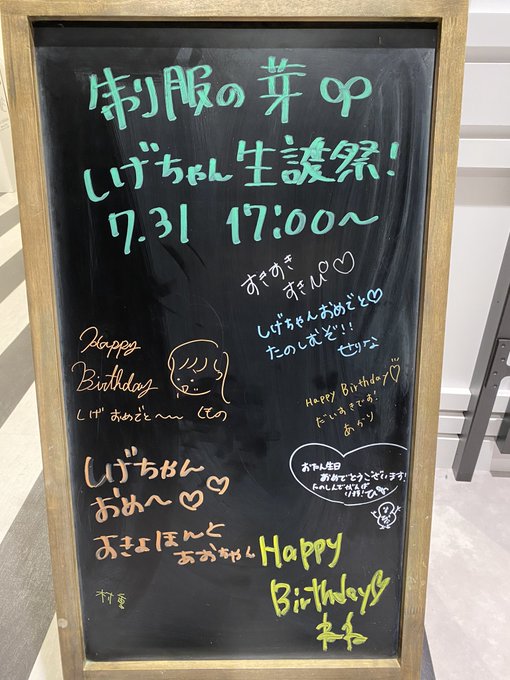 制服の芽
しげちゃん生誕祭!
7.31 17:00〜
すきすき
すきぴ♡
しげちゃんおめでと♡
たのしむぞ!!
せりな
Happy
Birthday
しげ おめでと〜
Happy Birthday♡
だいすきです!
あかり
しげちゃん
おめ〜♡♡
すきよほんと
あおちゃん
お誕生日
おめでとうございます!
たのしんでがんば
ひな
Happy
Birthday
ねね